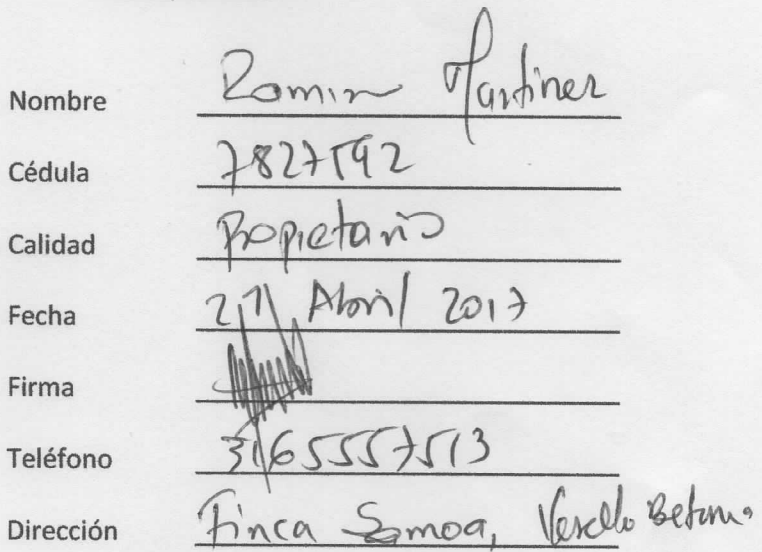 Nombre Ramin Martinez
Cédula 7827592
Calidad Propietario
Fecha Abril 2017
Firma
Teléfono 3165557513
Dirección Finca Samoa,